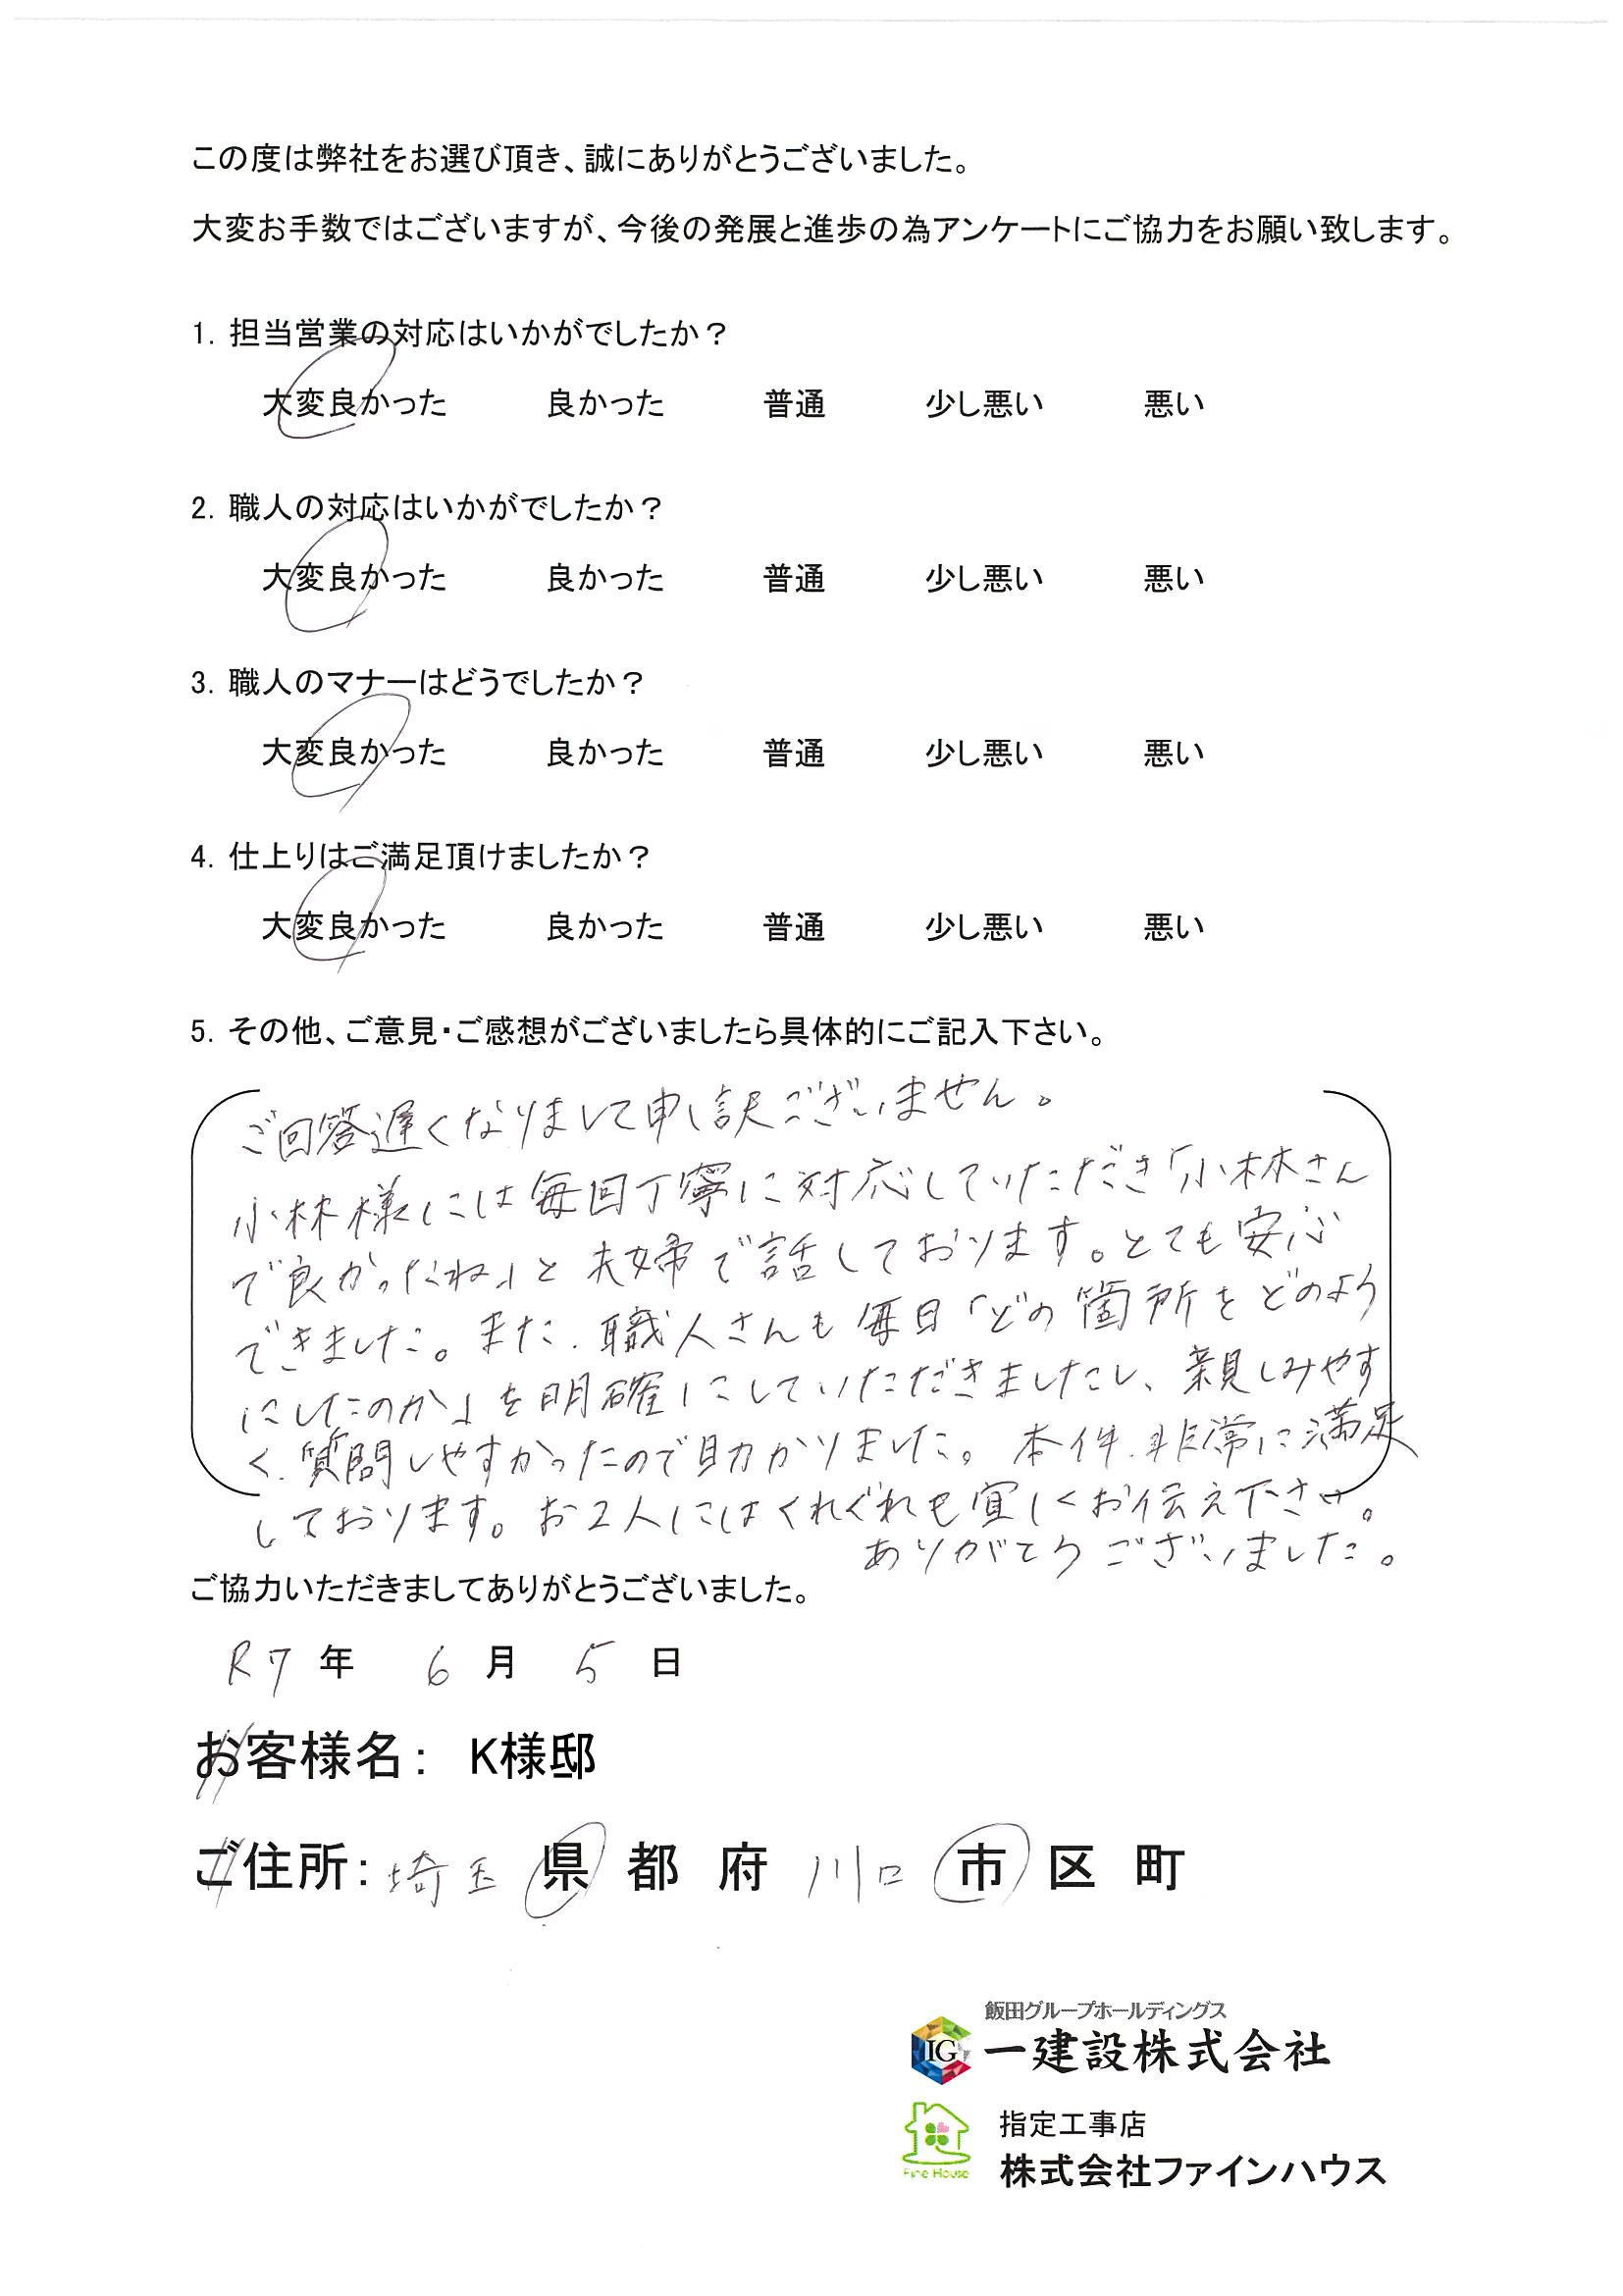 この度は弊社をお選び頂き、誠にありがとうございました。
大変お手数ではございますが、今後の発展と進歩の為アンケートにご協力をお願い致します。
1. 担当営業の対応はいかがでしたか？
大変良かった 良かった 普通 少し悪い 悪い
2. 職人の対応はいかがでしたか？
大変良かった 良かった 普通 少し悪い 悪い
3. 職人のマナーはどうでしたか？
大変良かった 良かった 普通 少し悪い 悪い
4. 仕上りはご満足頂けましたか？
大変良かった 良かった 普通 少し悪い 悪い
5. その他、ご意見・ご感想がございましたら具体的にご記入下さい。
ご回答遅くなりまして申し訳ございません。
小林様には毎回丁寧に対応していただき「小林さん
で良かったね」と夫婦で話しております。とても安心
できました。また、職人さんも毎日「どの箇所をどのよう
にしたのか」を明確にしていただきましたし、親しみやす
く、質問しやすかったので助かりました。本件、非常に満足
しております。お2人にはくれぐれも宜しくお伝え下さい。
ありがとうございました。
ご協力いただきましてありがとうございました。
R7 年 6 月 5 日
お客様名： K様邸
ご住所：埼玉 県 都 府 川口 市 区 町
飯田グループホールディングス
IG 一建設株式会社
指定工事店
Fine House 株式会社ファインハウス